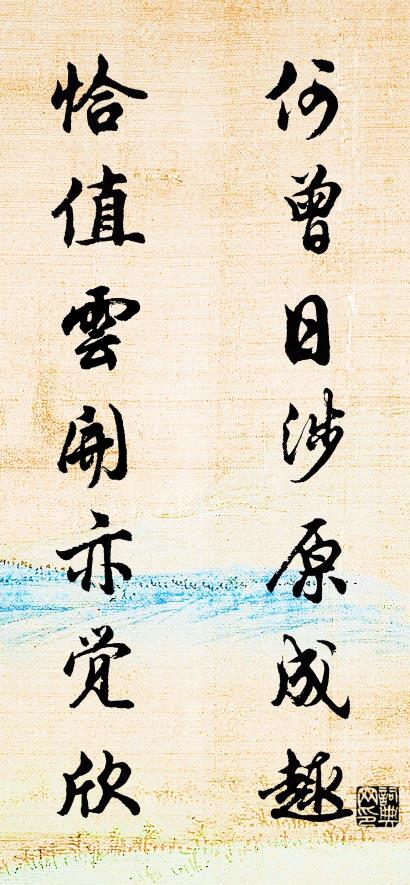 何曾日涉原成趣
恰值雲開亦觉欣
詞典网印